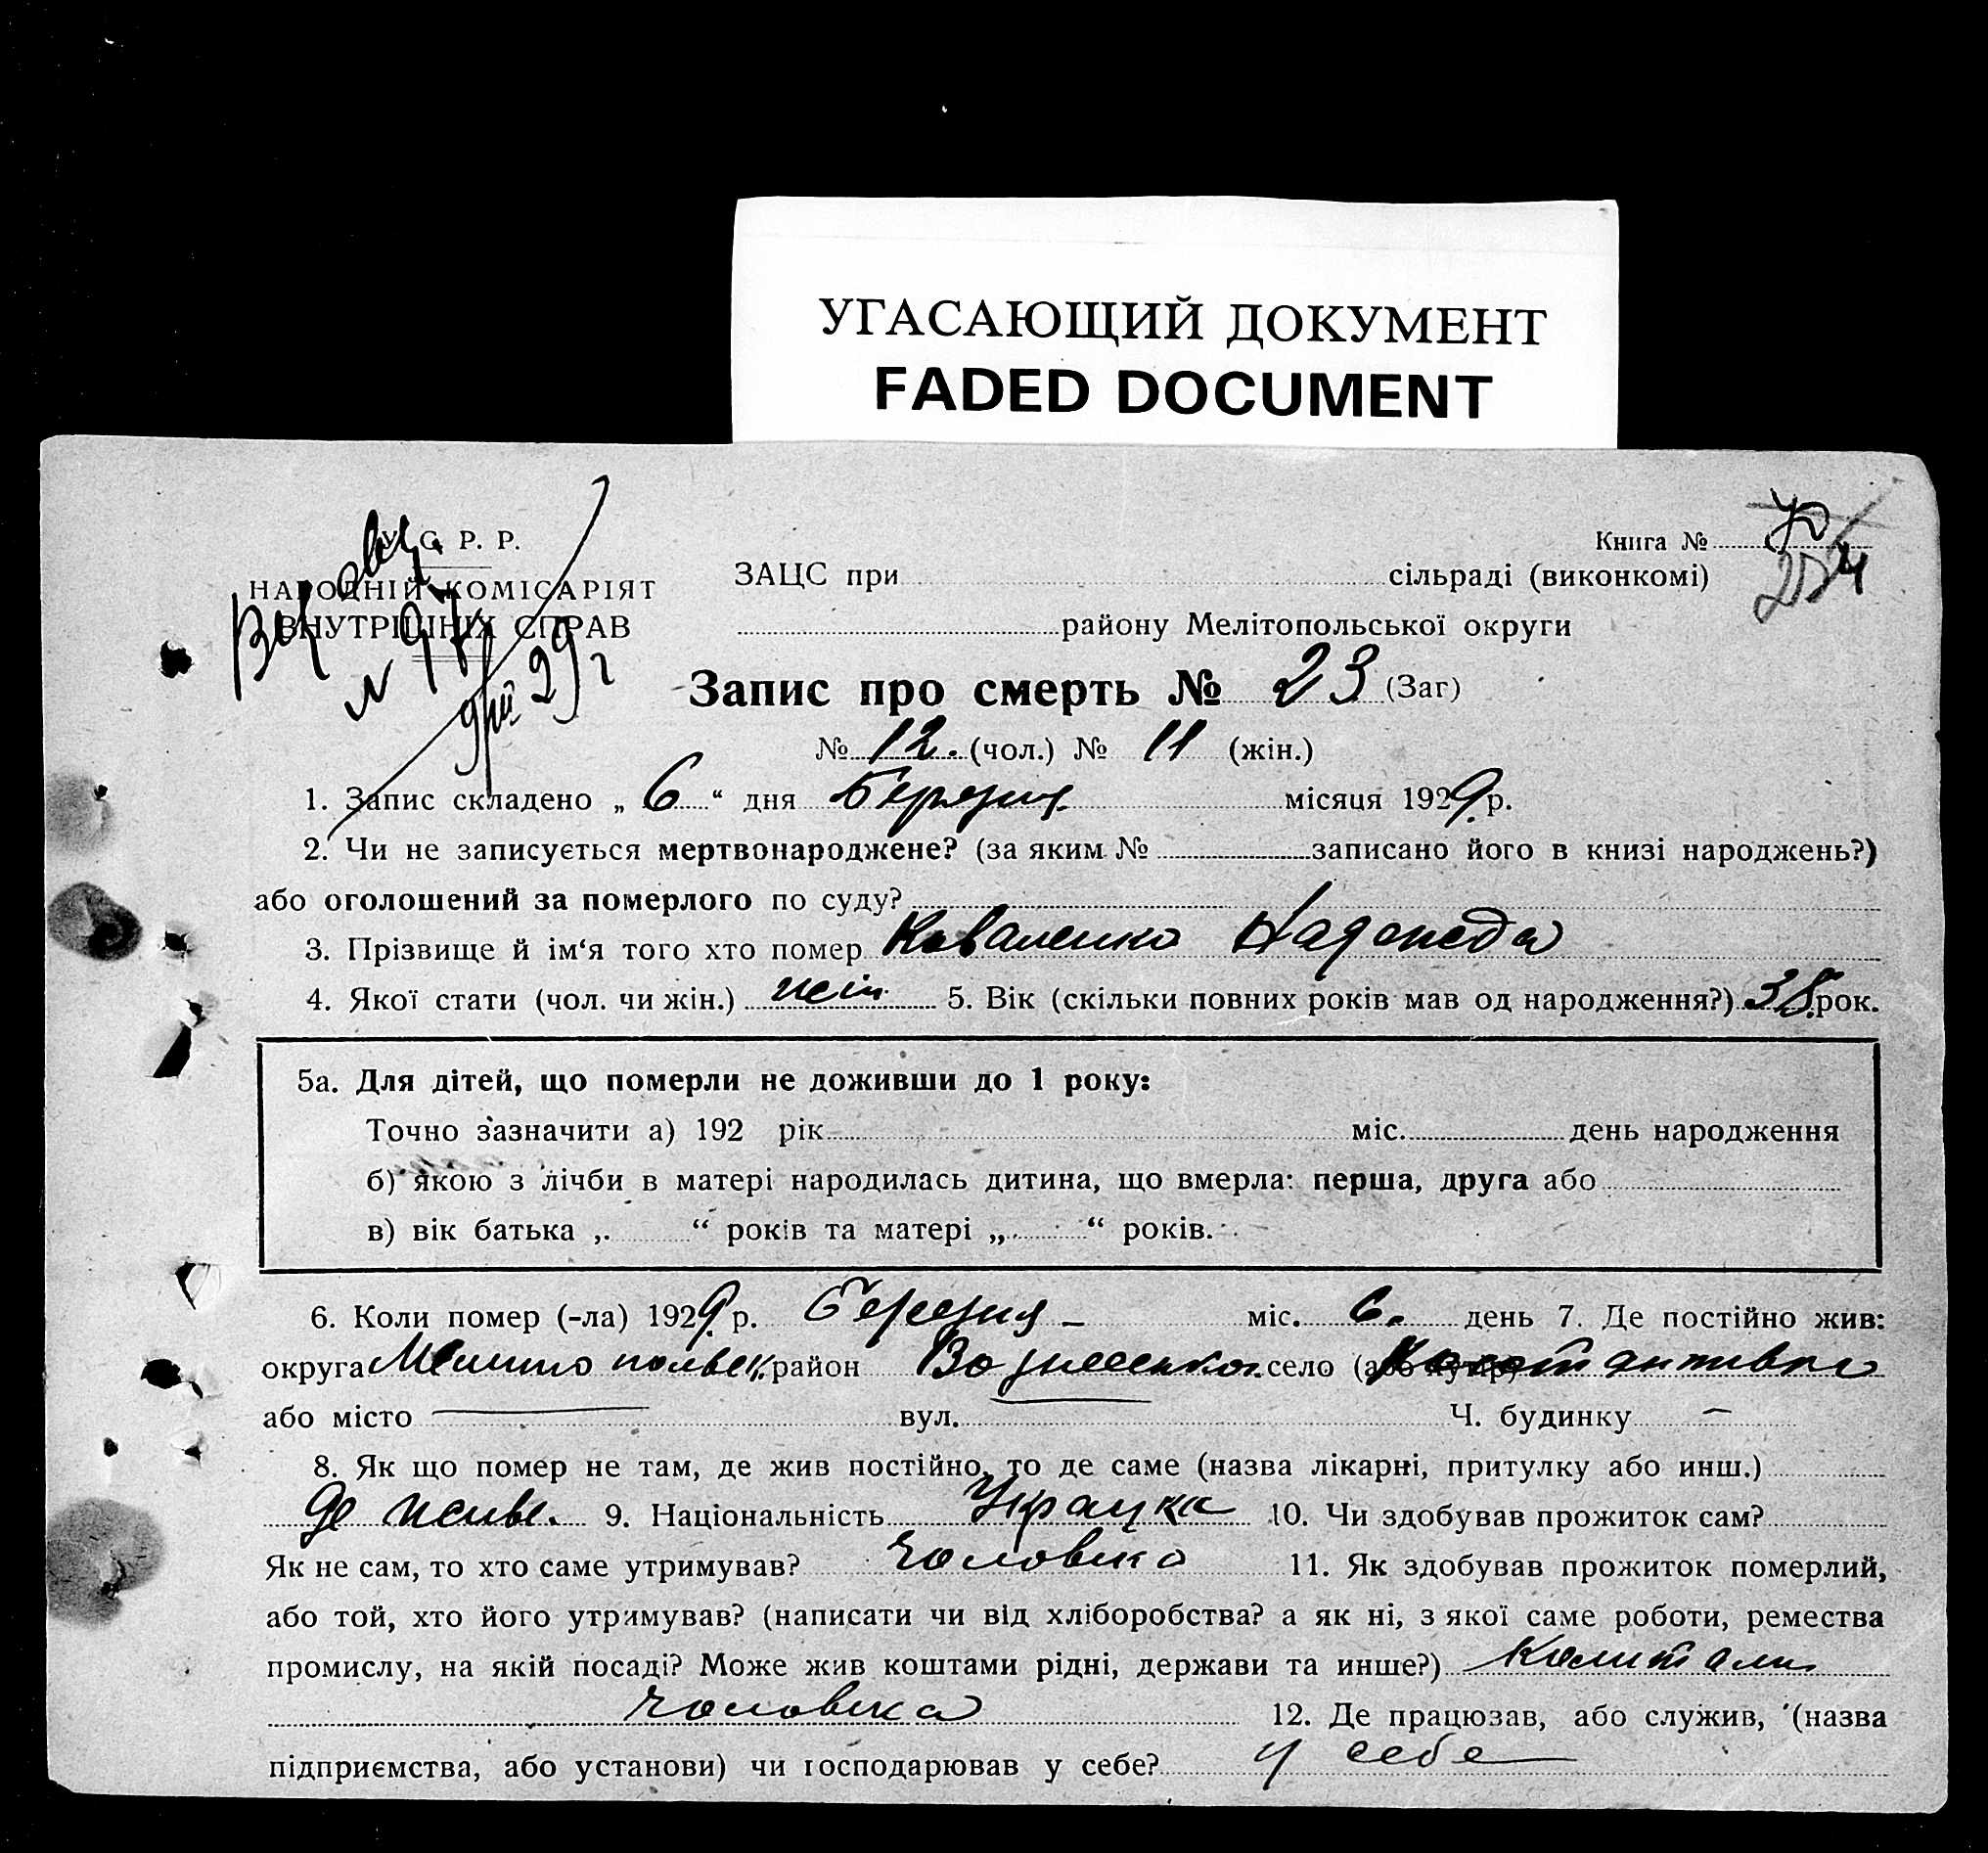 УГАСАЮЩИЙ ДОКУМЕНТ
FADED DOCUMENT
У. С. Р. Р.
НАРОДНІЙ КОМІСАРІЯТ
ВНУТРІШНІХ СПРАВ
N 97
29 г
Книга №
ЗАЦС при сільраді (виконкомі)
району Мелітопольської округи
Запис про смерть № 23 (Заг)
№ 12. (чол.) № 11 (жін.)
1. Запис складено „ 6 “ дня Березня місяця 1929 р.
2. Чи не записується мертвонароджене? (за яким № записано його в книзі народжень?)
або оголошений за померлого по суду?
3. Прізвище й ім‘я того хто помер Коваленко Надежда
4. Якої стати (чол. чи жін.) жін. 5. Вік (скільки повних років мав од народження?) 38 рок.
5а. Для дітей, що померли не доживши до 1 року:
Точно зазначити а) 192 рік міс. день народження
б) якою з лічби в матері народилась дитина, що вмерла: перша, друга або
в) вік батька „ “ років та матері „ “ років.
6. Коли помер (-ла) 1929 р. Березня – міс. 6. день 7. Де постійно жив:
округа Мелітопольск. район Вознесенськ. село (або хутір)
або місто — вул. Ч. будинку –
8. Як що помер не там, де жив постійно, то де саме (назва лікарні, притулку або инш.)
де живе. 9. Національність Українка 10. Чи здобував прожиток сам?
Як не сам, то хто саме утримував? Чоловіка 11. Як здобував прожиток померлий,
або той, хто його утримував? (написати чи від хліборобства? а як ні, з якої саме роботи, ремества
промислу, на якій посаді? Може жив коштами рідні, держави та инше?) Коштами
чоловіка 12. Де працюзав, або служив, (назва
підприємства, або установи) чи господарював у себе? у себе